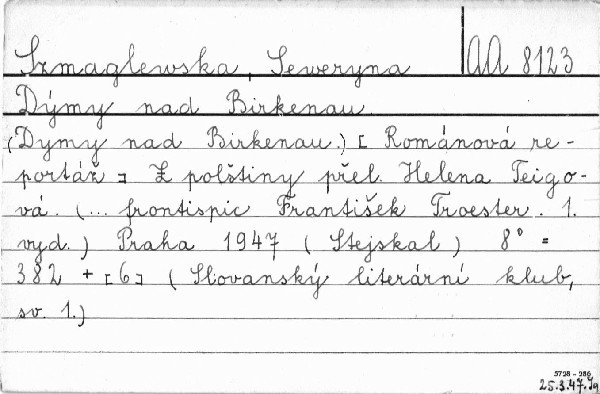 Szmaglewska, Seweryna AA 8123
Dýmy nad Birkenau
(Dymy nad Birkenau.) [ Románová re-
portáž ] Z polštiny přel. Helena Teigo-
vá. (... frontispic František Troester. 1.
vyd.) Praha 1947 ( Stejskal ) 8° =
382 + [6] ( Slovanský literární klub,
sv. 1.)
5798 - 986
25.3.47.